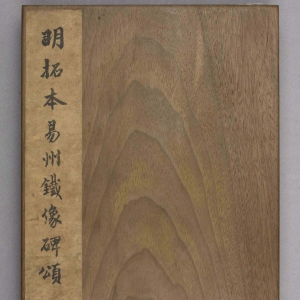 明拓本易州鐵像碑頌